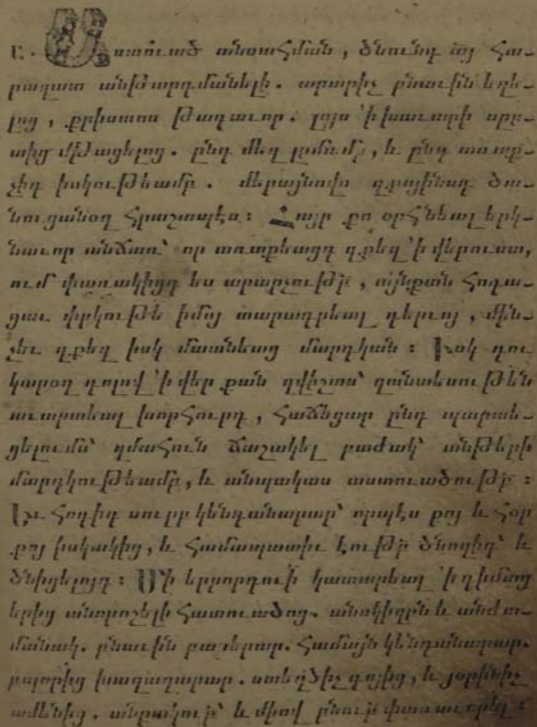 Ը. Աստուած անսահման, ծնունդ այ Հա֊
րազատ անթարգմանելի. արարիչ բնաւին եղե֊
լոց, քրիստոս թագաւոր. լոյս 'ի խաւարի սըր֊
տից մթացելոց. ընդ մեզ լրմամբ, և ընդ առաք֊
չիդ իսկութեամբ. մերայնովս զքոյինսդ ծա֊
նուցանօղ Հրաշապէս։ Հայր քո օրՀնեալ երկ֊
նաւոր անճառ՝ որ առաքեացդ զքեզ 'ի վերուստ,
ում փառակիցդ ես արարչութբ, այնքան Հոգա֊
ցաւ փրկութե իմոյ տարագրեալ գերւոյ, մին֊
չեւ զքեզ իսկ մատնեաց մարդկան։ Իսկ դու
կարօղ գոլով 'ի վեր քան զվիշտս՝
աւարտեալ խորՀուրդ, Հաճեցար ընդ
զմաՀուն ճաշակել բաժակ՝ անթերի
մարդկութեամբ, և անպակաս աստուածութբ։
Եւ Հոգիդ սուրբ կենդանարար՝ որպէս քոյ և Հօր
քոյ իսկակից, և Համապատիւ էութբ ծնողիդ՝ և
ծնիցելոյդ։ Մի երրորդուի կատարեալ 'ի դիմաց
երից անորոշելի Հատուածոց. անսկիզբն և անժա֊
մանակ. բնաւին բարերար. Համայն կենդանարար.
բոլորից խաղաղարար. ստեղծիչ գոյից, և յօրինիչ
ամենից. և միով